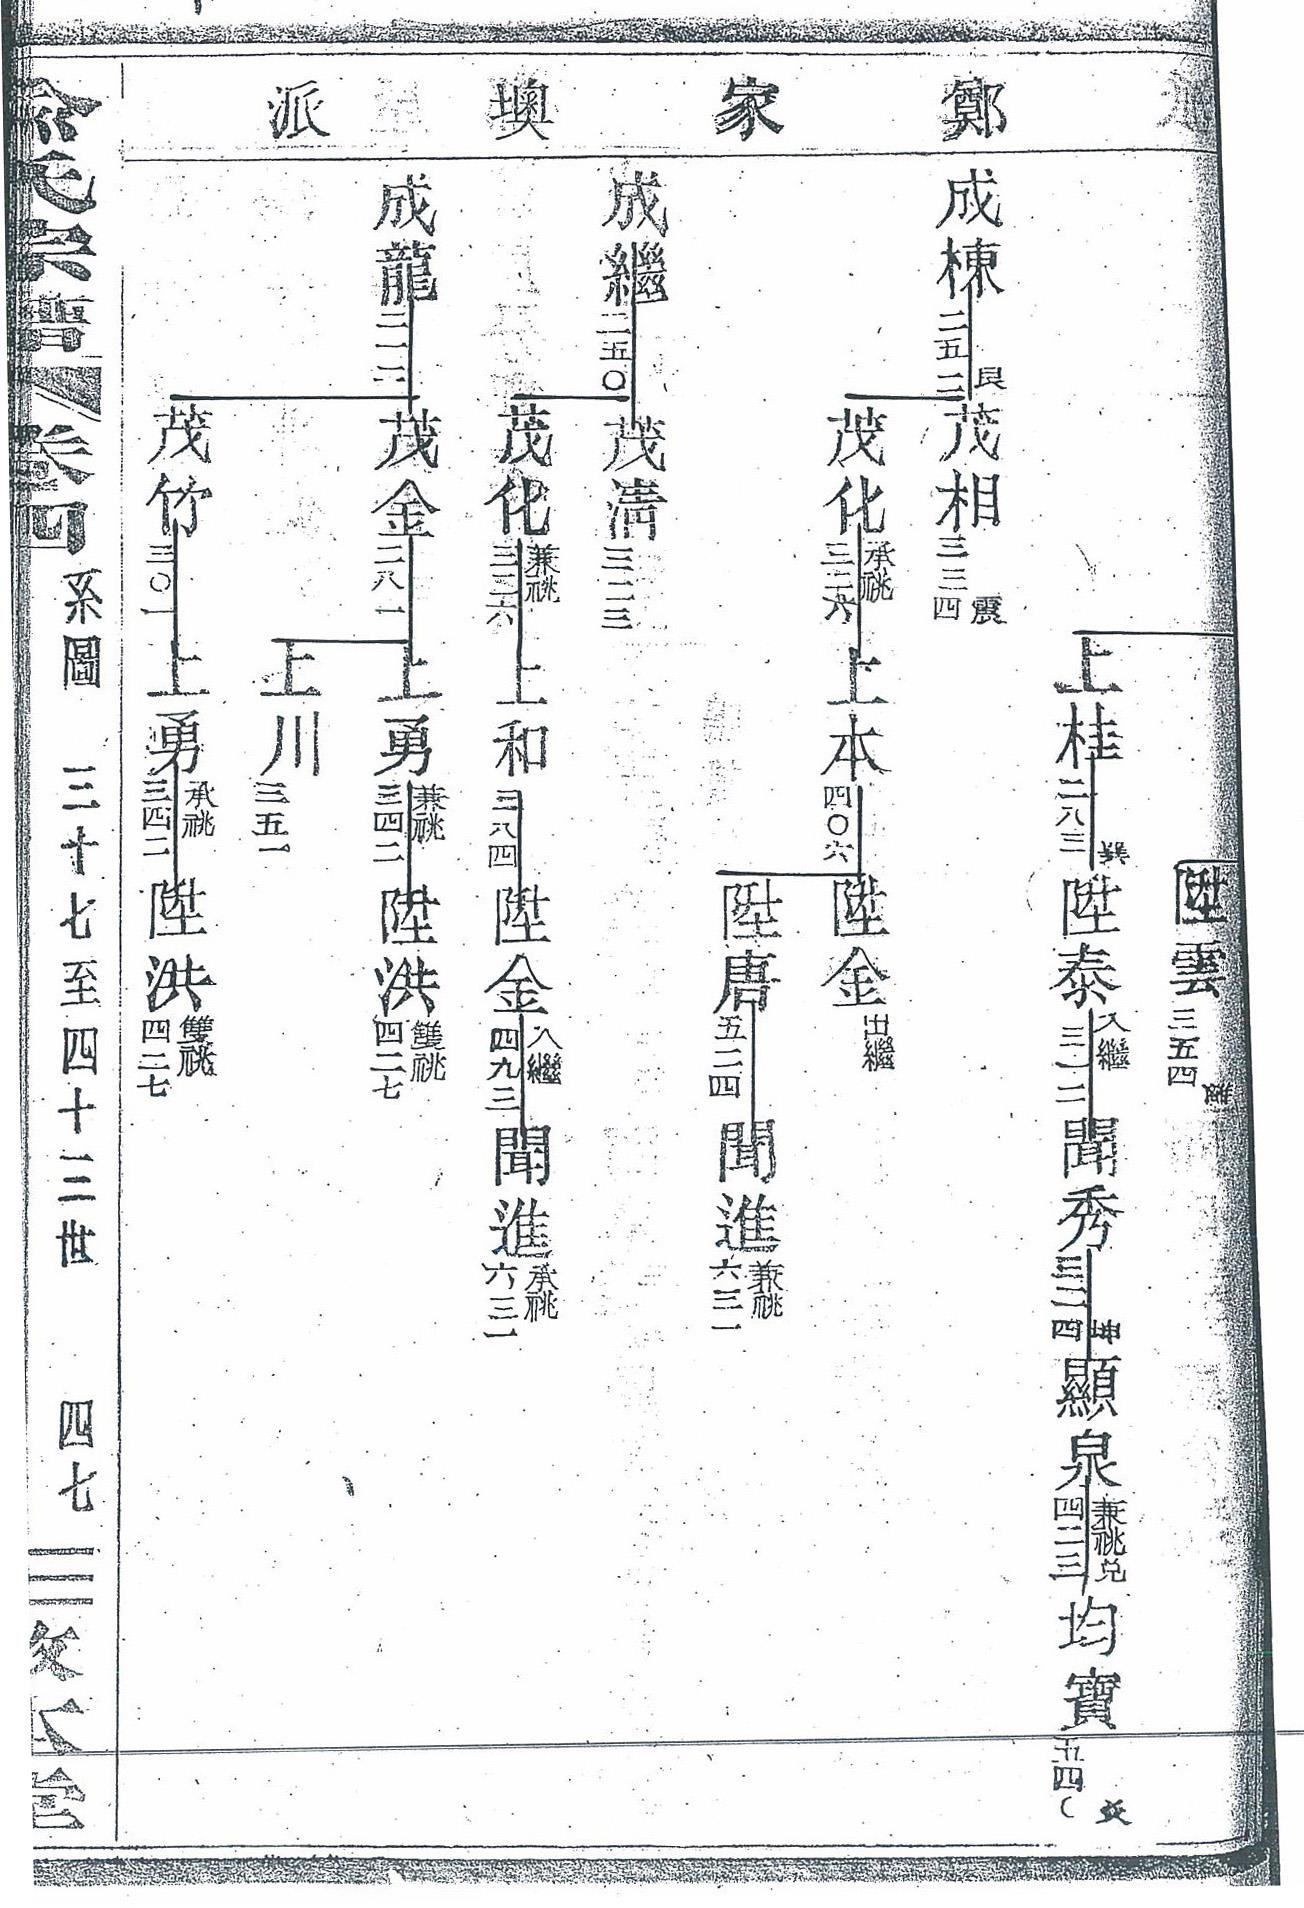 鄭家墺派
陞雲 三五四
上桂 二八三 巽
陞泰 入繼 三一二
聞秀 三二四 坤
顯泉 兼祧 兌 四二三
均寶 五四
成棟 二五二 艮
茂相 三三四 震
茂化 承祧 三二六
上本 四〇六
陞金 出繼
陞唐 五二四
聞進 兼祧 六三一
成繼 二五〇
茂淸 三二三
茂化 兼祧 三二六
上和 三八四
陞金 入繼 四九三
聞進 承祧 六三一
成龍 二一二
茂金 二八一
上勇 兼祧 三四二
陞洪 雙祧 四二七
上川 三五一
茂竹 三〇一
上勇 承祧 三四二
陞洪 雙祧 四二七
氏宗譜 卷四 系圖 三十七至四十三世 四七